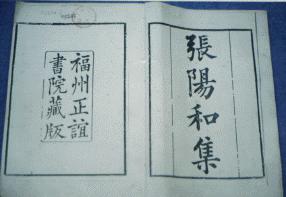 張陽和集
福州正誼
書院藏版